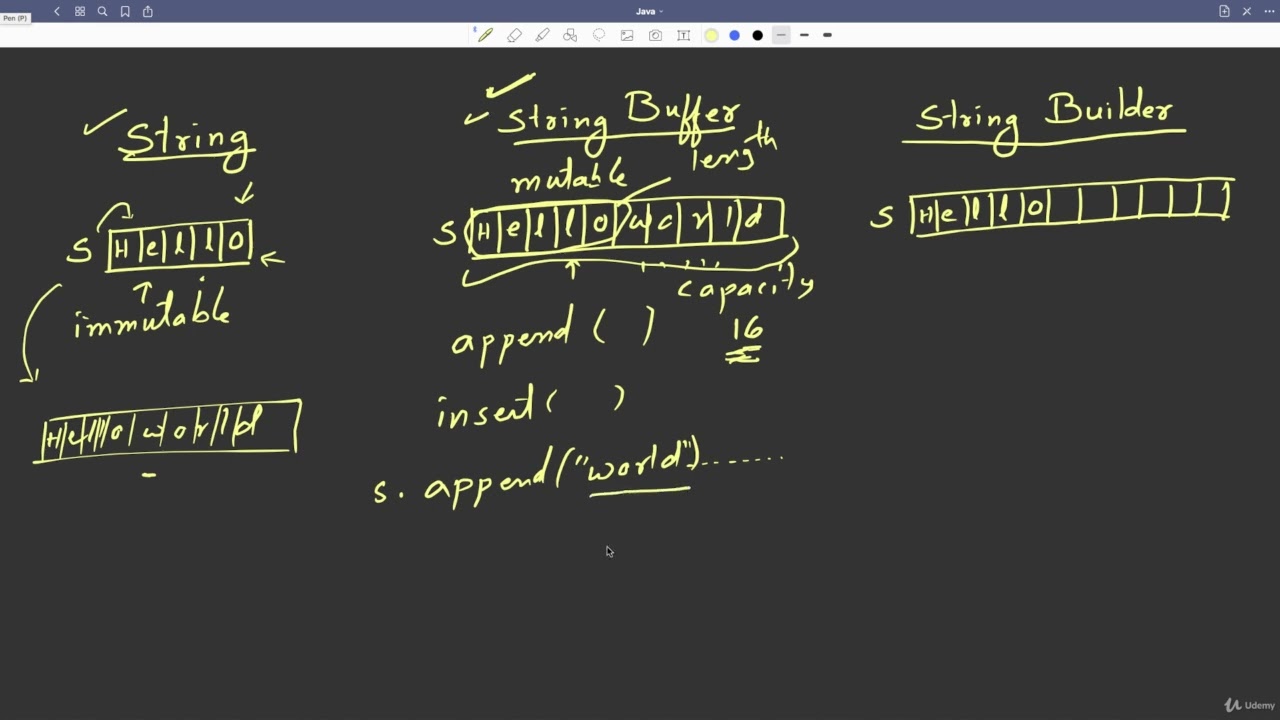 Pen (P)
Java
String
S H e l l o
immutable
H e l l o w o r l d
String Buffer
length
mutable
S H e l l o w o r l d
capacity
append ( ) 16
insert ( )
s. append ("world").......
String Builder
S H e l l o
Udemy